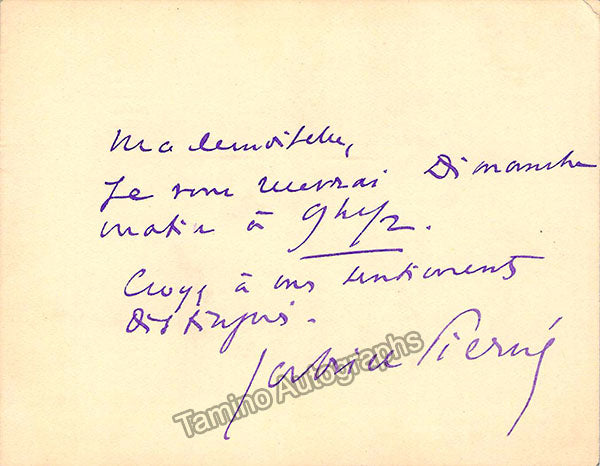 Mademoiselle,
Je vous recevrai Dimanche
matin à 9h 1/2.
Croyez à mes sentiments
distingués.
Gabriel Pierné
Tamino Autographs